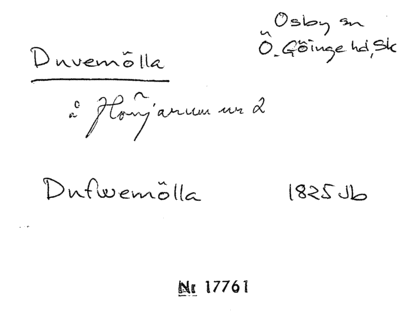 Osby sn
Duvemölla
Ö. Göinge hd, Sk
å Hönjarum nr 2
Dufwemölla 1825 Jb
Nr 17761